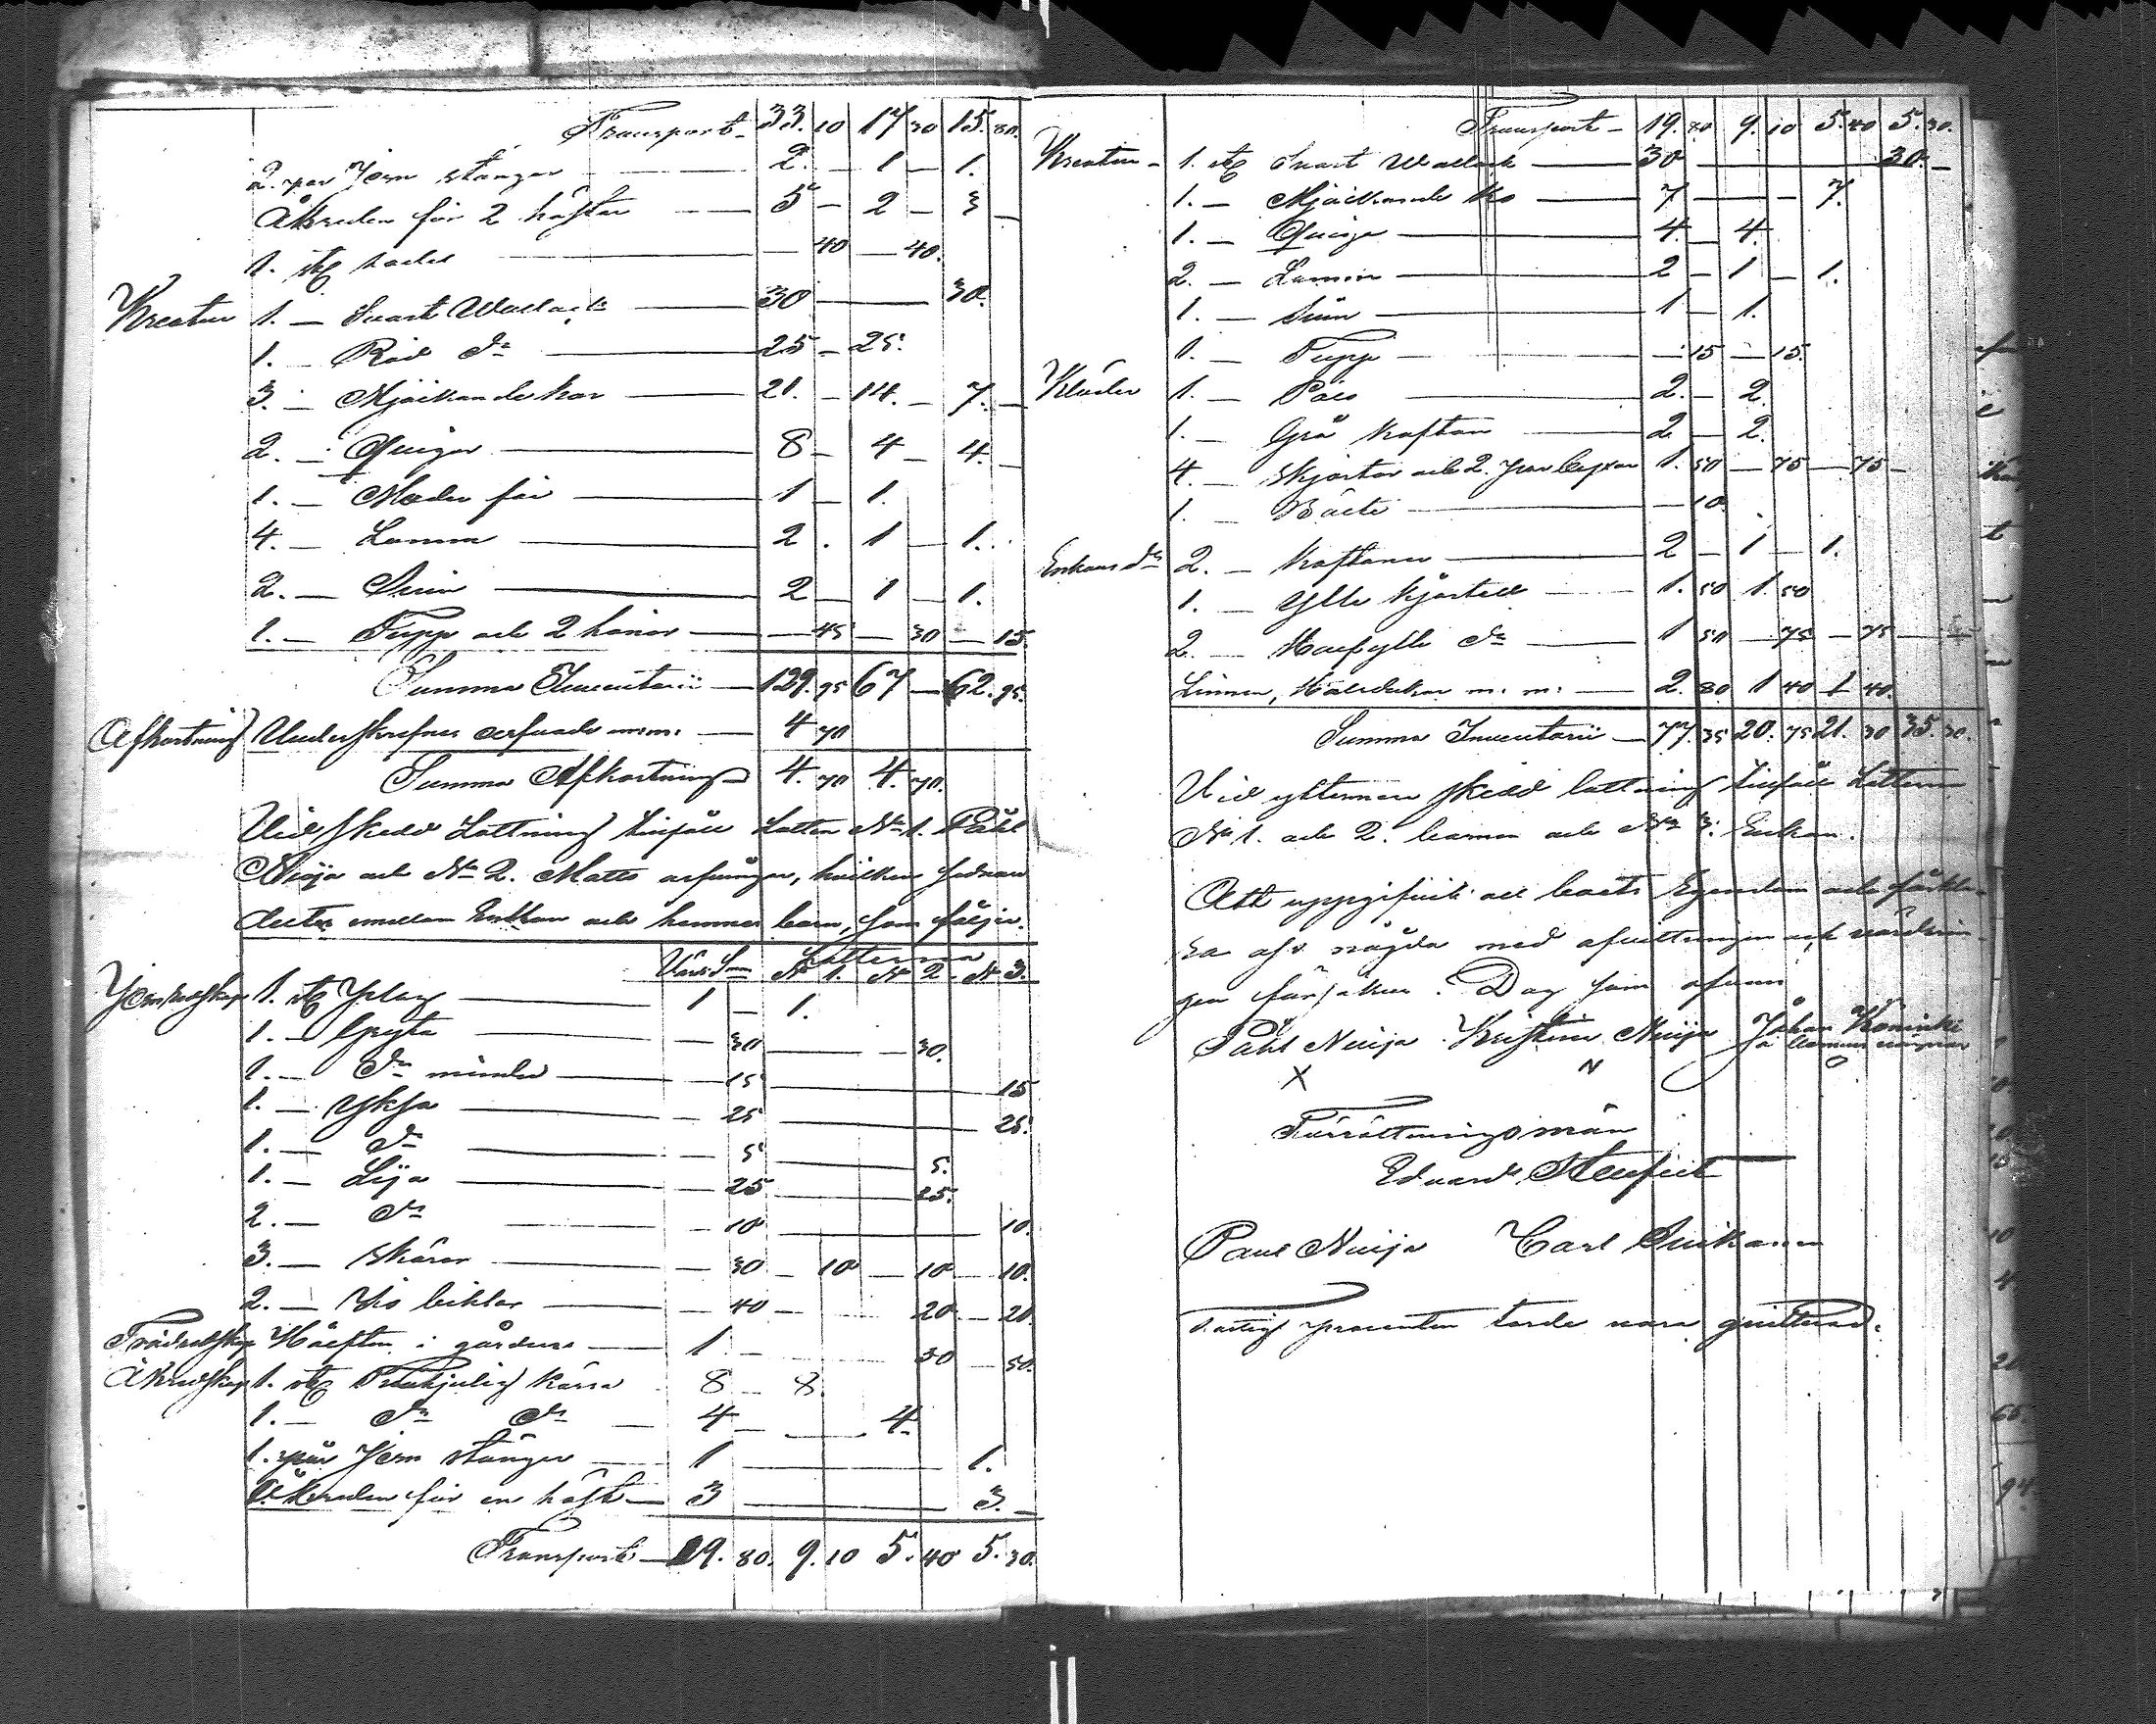 Transport - 33. 10 17 30 15. 80.
2. par Jern stänger 2. — 1 — 1.
Åkreden för 2 hästar 5 — 2 — 3 —
1. st sadel — 40 — 40.
Kreatur 1. — Svart Wallack 30 — 30.
1. — Röd d:o 25 — 25.
3. — Mjölkande kor 21. — 14. — 7. —
2. — Qvigor 8 — 4 — 4. —
1. — Moder får 1 — 1.
4. — Lamm 2 . 1 — 1.
2. — Svin 2 — 1 — 1.
1. — Tupp och 2 hönor — 45 — 30 — 15.
Summa Inventarii — 129. 95 67 — 62. 95.
Afkortning Underskrefnes arfvode m.m. — 4 70
Summa Afkortning 4. 70 4. 70.
Vid skedd Lottning tillföll Lotten N:o 1. Påhl
Nuija och N:o 2. Matts arfvingar, hvilken sednare
delter emellan Enkan och hennes barn, som följer.
Värde S:m Lotterna
N:o 1. N:o 2. N:o 3.
Jernredskap 1. st Plog 1 — 1.
1. — Gryta — 30 — 30.
1. — d:o mindre — 15 15
1. — Yksa — 25 25.
1. — d:o — 5 5.
1. — Lija — 25 25.
2. — d:o — 10 10.
3. — skäror — 30 — 10 — 10 — 10.
2. — 40 — 20 — 20.
Trädredskap Hälften i gårdens 1 — 50 — 50.
Åkredskap 1. st Tvåhjulig kärra 8 — 8.
1. — d:o d:o — 4 — 4.
1. par Jern stänger 1 1.
Åkreden för en häst — 3 3. —
Transport — 19. 80. 9. 10 5. 40 5. 30.
Transport — 19. 80 9. 10 5. 40 5. 30.
Kreatur — 1. st Svart Wallack 30 30. —
1. — Mjölkande ko 7 — 7.
1. — Qviga 4. — 4.
2. — Lamm 2 — 1 — 1.
1. — Svin 1 — 1.
1. — Tupp — 15 — 15.
Kläder 1. — Päls 2. — 2.
1. — Grå kaftan 2 — 2.
4. — skjortor och 2. par byxor 1. 50 — 75 — 75 —
1. — Bälte — 10
Enkans d:o 2. — Kaftaner 2 — 1 — 1.
1. — Ylle kjortel 1. 50 1. 50
2. — Halfylle d:o 1 50 — 75 — 75
Linnen, Halsdukar m. m: — 2. 80 1 40 1 40.
Summa Inventarii — 77. 35 20. 75 21. 30 35. 30.
Vid yttermera skedd lottning tillföll Lotterna
N:o 1. och 2. barnen och N:o 3. Enkan.
Att uppgifvit all boets Egendom och förkla-
ra oss nöjda med afvittringen och värderin-
gen försäkra. Dag som ofvan
Påhl Nuija Kristina Nuija Johan
X N
Förrättningsmän
Eduard
Paul Nuija Carl
Fattig procenten torde vara quitterad.